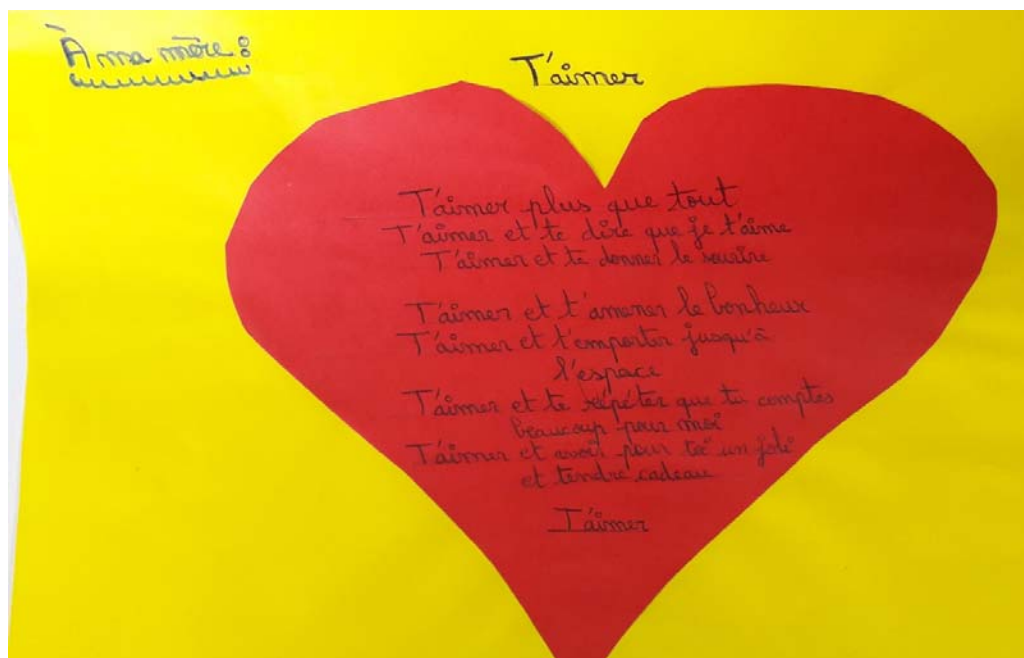 À ma mère :
T'aimer
T'aimer plus que tout
T'aimer et te dire que je t'aime
T'aimer et te donner le sourire
T'aimer et t'amener le bonheur
T'aimer et t'emporter jusqu'à
l'espace
T'aimer et te répéter que tu comptes
beaucoup pour moi
T'aimer et avoir pour toi un joli
et tendre cadeau
T'aimer